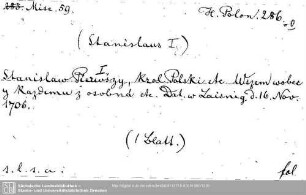 283. Misc. 59.
H. Polon. 286
(Stanislaus I.)
Stanislaw Pierwszy, I Krol Polski etc Wszem wobec
y Kazdemu z osobna etc. Dat. w Laisnig, d. 16. Nov.
1706.
(1 Blatt.)
s. l. s. a.
fol
Sächsische Landesbibliothek -
Staats- und Universitätsbibliothek Dresden